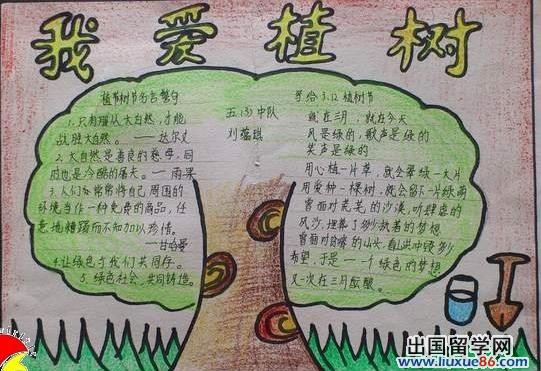 我爱植树
植节树节名言警句
1.只有服从大自然,才能
战胜大自然。——达尔文
2.大自然是善良的慈母,同
时也是冷酷的屠夫。——雨果
3.人们常常将自己周围的
环境当作一种免费的商品,任
意地糟蹋而不知加以珍惜。
——甘哈曼
4.让绿色与我们共同存。
5.绿色社会,共同铸造。
五(3)中队
刘蕴琪
写给3.12植树节
就在三月,就在今天
风是绿的,歌声是绿的
笑声是绿的
用心植一片草,就会翠绿一大片
用爱种一棵树,就会留下一片绿雨
曾面对茫茫的沙漠,听肆虐的
风沙,埋葬了多少执着的梦想
曾面对的山头,看山洪冲毁多少
希望,于是一个绿色的梦想
又一次在三月酝酿。
出国留学网
www.liuxue86.com